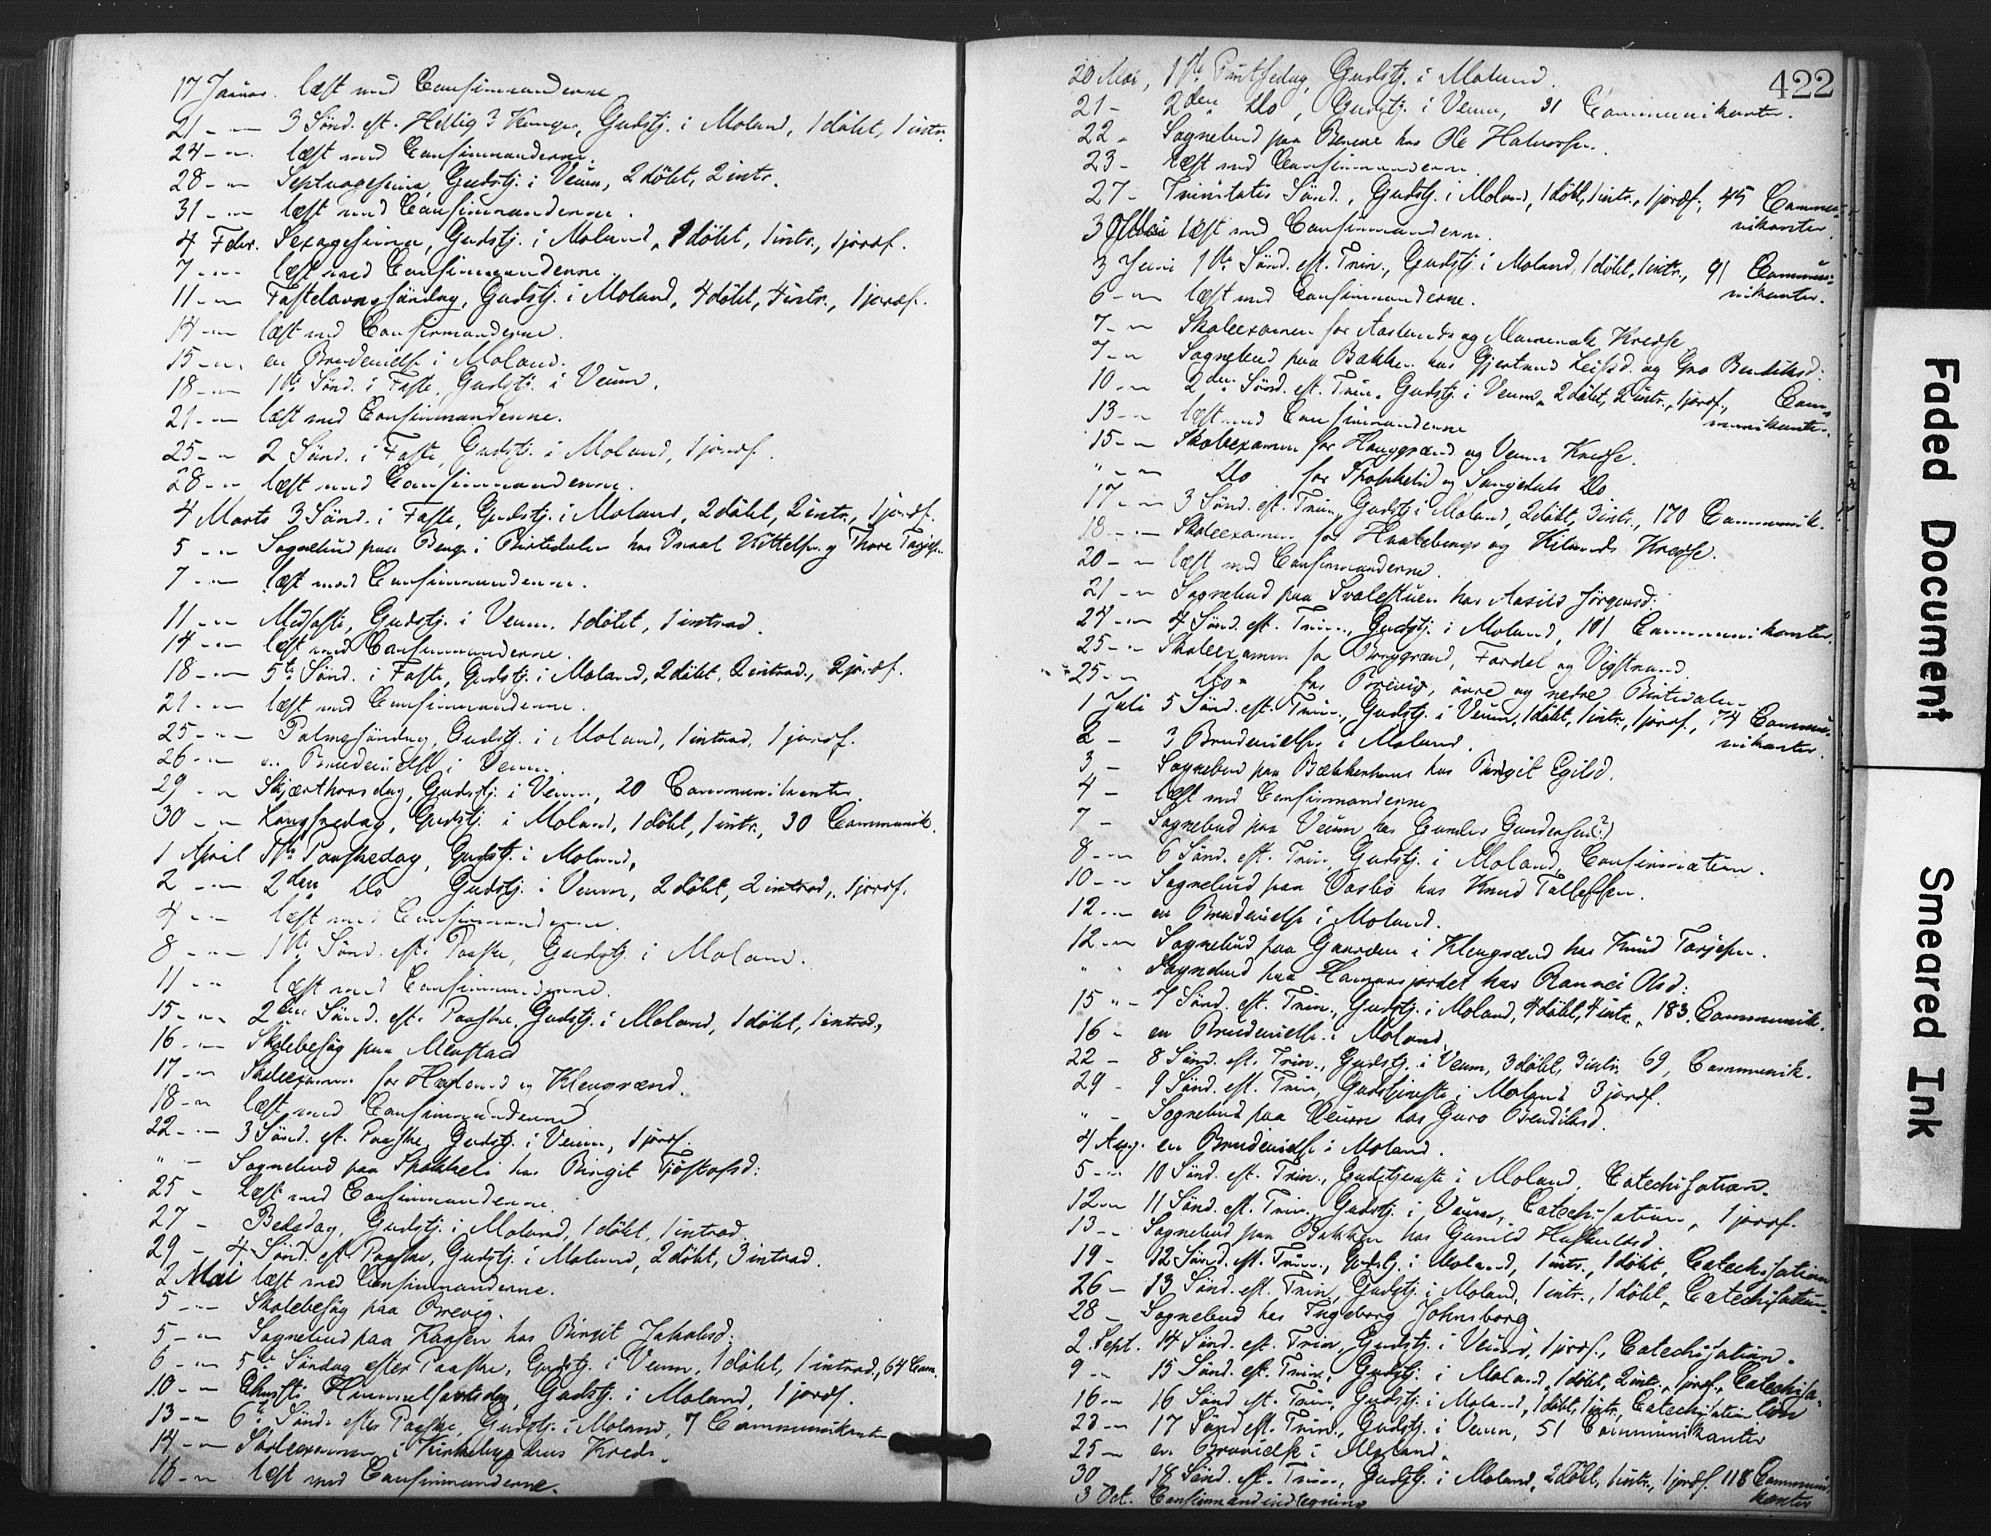 17 Januar. læst med Confirmanderne
21 – " – 3 Sønd. eft. Hellig 3 Konger, Gudstj. i Moland, 1 døbt, 1 intr.
24 – " – læst med Confirmanderne.
28 – " – Septuagesima, Gudstj. i Veum, 2 døbt, 2 intr.
31 – " – læst med Confirmanderne.
4 Febr. Sexagesima, Gudstj. i Moland, 1 døbt, 1 intr., 1 jordf.
7 – " – læst med Confirmanderne.
11 – " – Fastelavnssöndag, Gudstj. i Moland, 4 døbt, 4 intr., 1 jordf.
14 – " – læst med Confirmanderne.
15 – " – en Brudevielse i Moland.
18 – " – 1ste Sønd. i Faste, Gudstj. i Veum.
21 – " – læst med Confirmanderne.
25 – " – 2 Sønd. i Faste, Gudstj. i Moland, 1 jordf.
28 – " – læst med Confirmanderne.
4 Marts 3 Sønd. i Faste, Gudstj. i Moland, 2 døbt, 2 intr., 1 jordf.
5 – " – Sognebud paa Berge i Birtedalen hos Kittelsen og Thore
7 – " – læst med Confirmanderne.
11 – " – Midfaste, Gudstj. i Veum. 1 døbt, 1 introd.
14 – " – læst med Confirmanderne.
18 – " – 5te Sønd. i Faste, Gudstj. i Moland, 2 døbt, 2 introd., 2 jordf.
21 – " – læst med Confirmanderne.
25 – " – Palmesöndag, Gudstj. i Moland, 1 introd, 1 jordf.
26 – " – en Brudevielse i Veum.
29 – " – Skjærthorsdag, Gudstj. i Veum, 20 Communikanter
30 – " – Langfredag, Gudstj. i Moland, 1 døbt, 1 intr., 30 Communik.
1 April 1ste Paaskedag, Gudstj. i Moland,
2 – " – 2den Do Gudstj. i Veum, 2 døbt, 2 introd., 1 jordf.
4 – " – læst med Confirmanderne
8 – " – 1ste Sønd. eft. Paaske, Gudstj. i Moland.
11 – " – læst med Confirmanderne.
15 – " – 2den Sønd. eft. Paaske. Gudstj. i Moland, 1 døbt, 1 introd,
16 – " – Skolebesøg paa Menstad
17 – " – Skoleexamen for og Klevgrænd.
18 – " – læst med Confirmanderne
22 – " – 3 Sønd. eft. Paaske Gudstj. i Veum, 1 jordf.
" – Sognebud paa hos Birgit
25 – læst med Confirmanderne
27 – Bededag, Gudstj. i Moland, 1 døbt, 1 introd.
29 – 4 Sönd. eft Paaske, Gudstj. i Moland, 2 døbt, 3 introd.
2 Mai læst med Confirmanderne.
5 – " – Skolebesøg paa Brevig.
5 – " – Sognebud paa hos Birgit
6 – " – 5te Söndag efter Paaske, Gudstj. i Veum, 1 døbt, 1 introd., 64 Com.
10 – " Christi Himmelfartsdag, Gudstj. i Moland, 1 jordf.
13 – " – 6te Sönd. efter Paaske, Gudstj. i Moland, 7 Communikant
14 – " – Skoleexamen i Kirkebygdens Kreds.
16 – " – læst med Confirmanderne.
422
20 Mai, 1ste Pintsedag, Gudstj. i Moland.
21 – 2den Do, Gudstj. i Veum, 31 Communikanter.
22 – Sognebud paa hos Ole Halvorsen.
23 – læst med Confirmanderne
27 – Trinitatis Sønd., Gudstj. i Moland, 1 døbt, 1 intr., 1 jordf., 45 Commu-
nikanter.
30 Mai læst med Confirmanderne.
3 Juni 1ste Sønd. eft. Trin., Gudstj. i Moland, 1 døbt, 1 intr., 91 Commu-
nikanter.
6 – " – læst med Confirmanderne.
7 – " Skoleexamen for og Kredse
7 – " Sognebud paa Bakken hos Gjertrud og Gro
10 – " 2den Sönd. eft. Trin. Gudstj. i Veum, 2 døbt, 2 intr., 1 jordf., Com-
munikanter.
13 – " læst med Confirmanderne
15 – " Skoleexamen for Haugsrand og Veum Kredse.
" – " Do for og Do
17 – " – 3 Sönd. eft. Trin, Gudstj. i Moland, 2 døbt, 3 intr., 170 Communik.
18 – " – Skoleexamen for og Kredse.
20 – " læst med Confirmanderne.
21 – " Sognebud paa Svalestuen hos Aasild Jörgensd.
24 – " 4 Sönd. eft. Trin., Gudstj. i Moland, 101 Communikanter
25 – " Skoleexamen for Fardal og Vigstrand.
25 – " Do for Brevig, övre og nedre Birtedalen.
1 Juli 5 Sønd. eft. Trin., Gudstj. i Veum, 1 døbt, 1 intr., 1 jordf, 74 Commu-
nikanter.
2 – 3 Brudevielser i Moland.
3 – Sognebud paa hos Birgit Egilsd.
4 – læst med Confirmanderne
7 – Sognebud paa Veum hos Gunder Gundersen(?)
8 – " 6 Sønd. eft. Trin, Gudstj. i Moland, Confirmation.
10 – " Sognebud paa Vasbø hos Knud Tallefsen.
12 – " en Brudevielse i Moland.
12 – " Sognebud paa Gaarden i Klevgrænd hos Knud Tarjesen.
" – Sognebud paa hos Rannei Olsd:
15 " – 7 Sönd. eft. Trin., Gudstj. i Moland, 4 døbt, 4 intr., 183 Communik.
16 – en Brudevielse i Moland.
22 – 8 Sönd. eft. Trin., Gudstj. i Veum, 3 døbt, 3 intr. 69, Communik.
29 – 9 Sönd. eft. Trin, Gudstjeneste i Moland 3 jordf.
" – Sognebud paa Veum hos Guro Bendiksd.
4 Aug. en Brudevielse i Moland.
5 – " 10 Sönd. eft. Trin., Gudstjeneste i Moland, Catechisation.
12 – " 11 Sönd. eft. Trin., Gudstj. i Veum, Catechisation, 1 jordf.
13 – " Sognebud paa Bakken hos Gunild
19 – 12 Sönd. eft. Trin., Gudstj. i Moland, 1 intr., 1 döbt, Catechisation
26 – 13 Sönd. eft. Trin, Gudstj. i Moland, 1 intr., 1 döbt, Catechisation
28 – Sognebud hos Ingeborg Johnsborg
2. Sept. 14 Sönd. eft. Trin, Gudstj. i Veum, 1 jordf., Catechisation.
9 " 15 Sönd. eft. Trin., Gudstj. i Moland, 1 døbt, 2 intr., 1 jordf., Catechisa-
tion
16 – " 16 Sönd eft. Trin, Gudstj. i Moland, 1 døbt, 1 intr., Catechisation
23 – " 17 Sönd eft. Trin., Gudstj. i Veum, 51 Communikanter
25 – " en Brudevielse i Moland.
30 – 18 Sönd. eft. Trin., Gudstj. i Moland, 2 döbt, 1 intr., 1 jordf. 118 Communi-
kanter
3 Oct. Confirmandindtegning
Faded Document
Smeared Ink